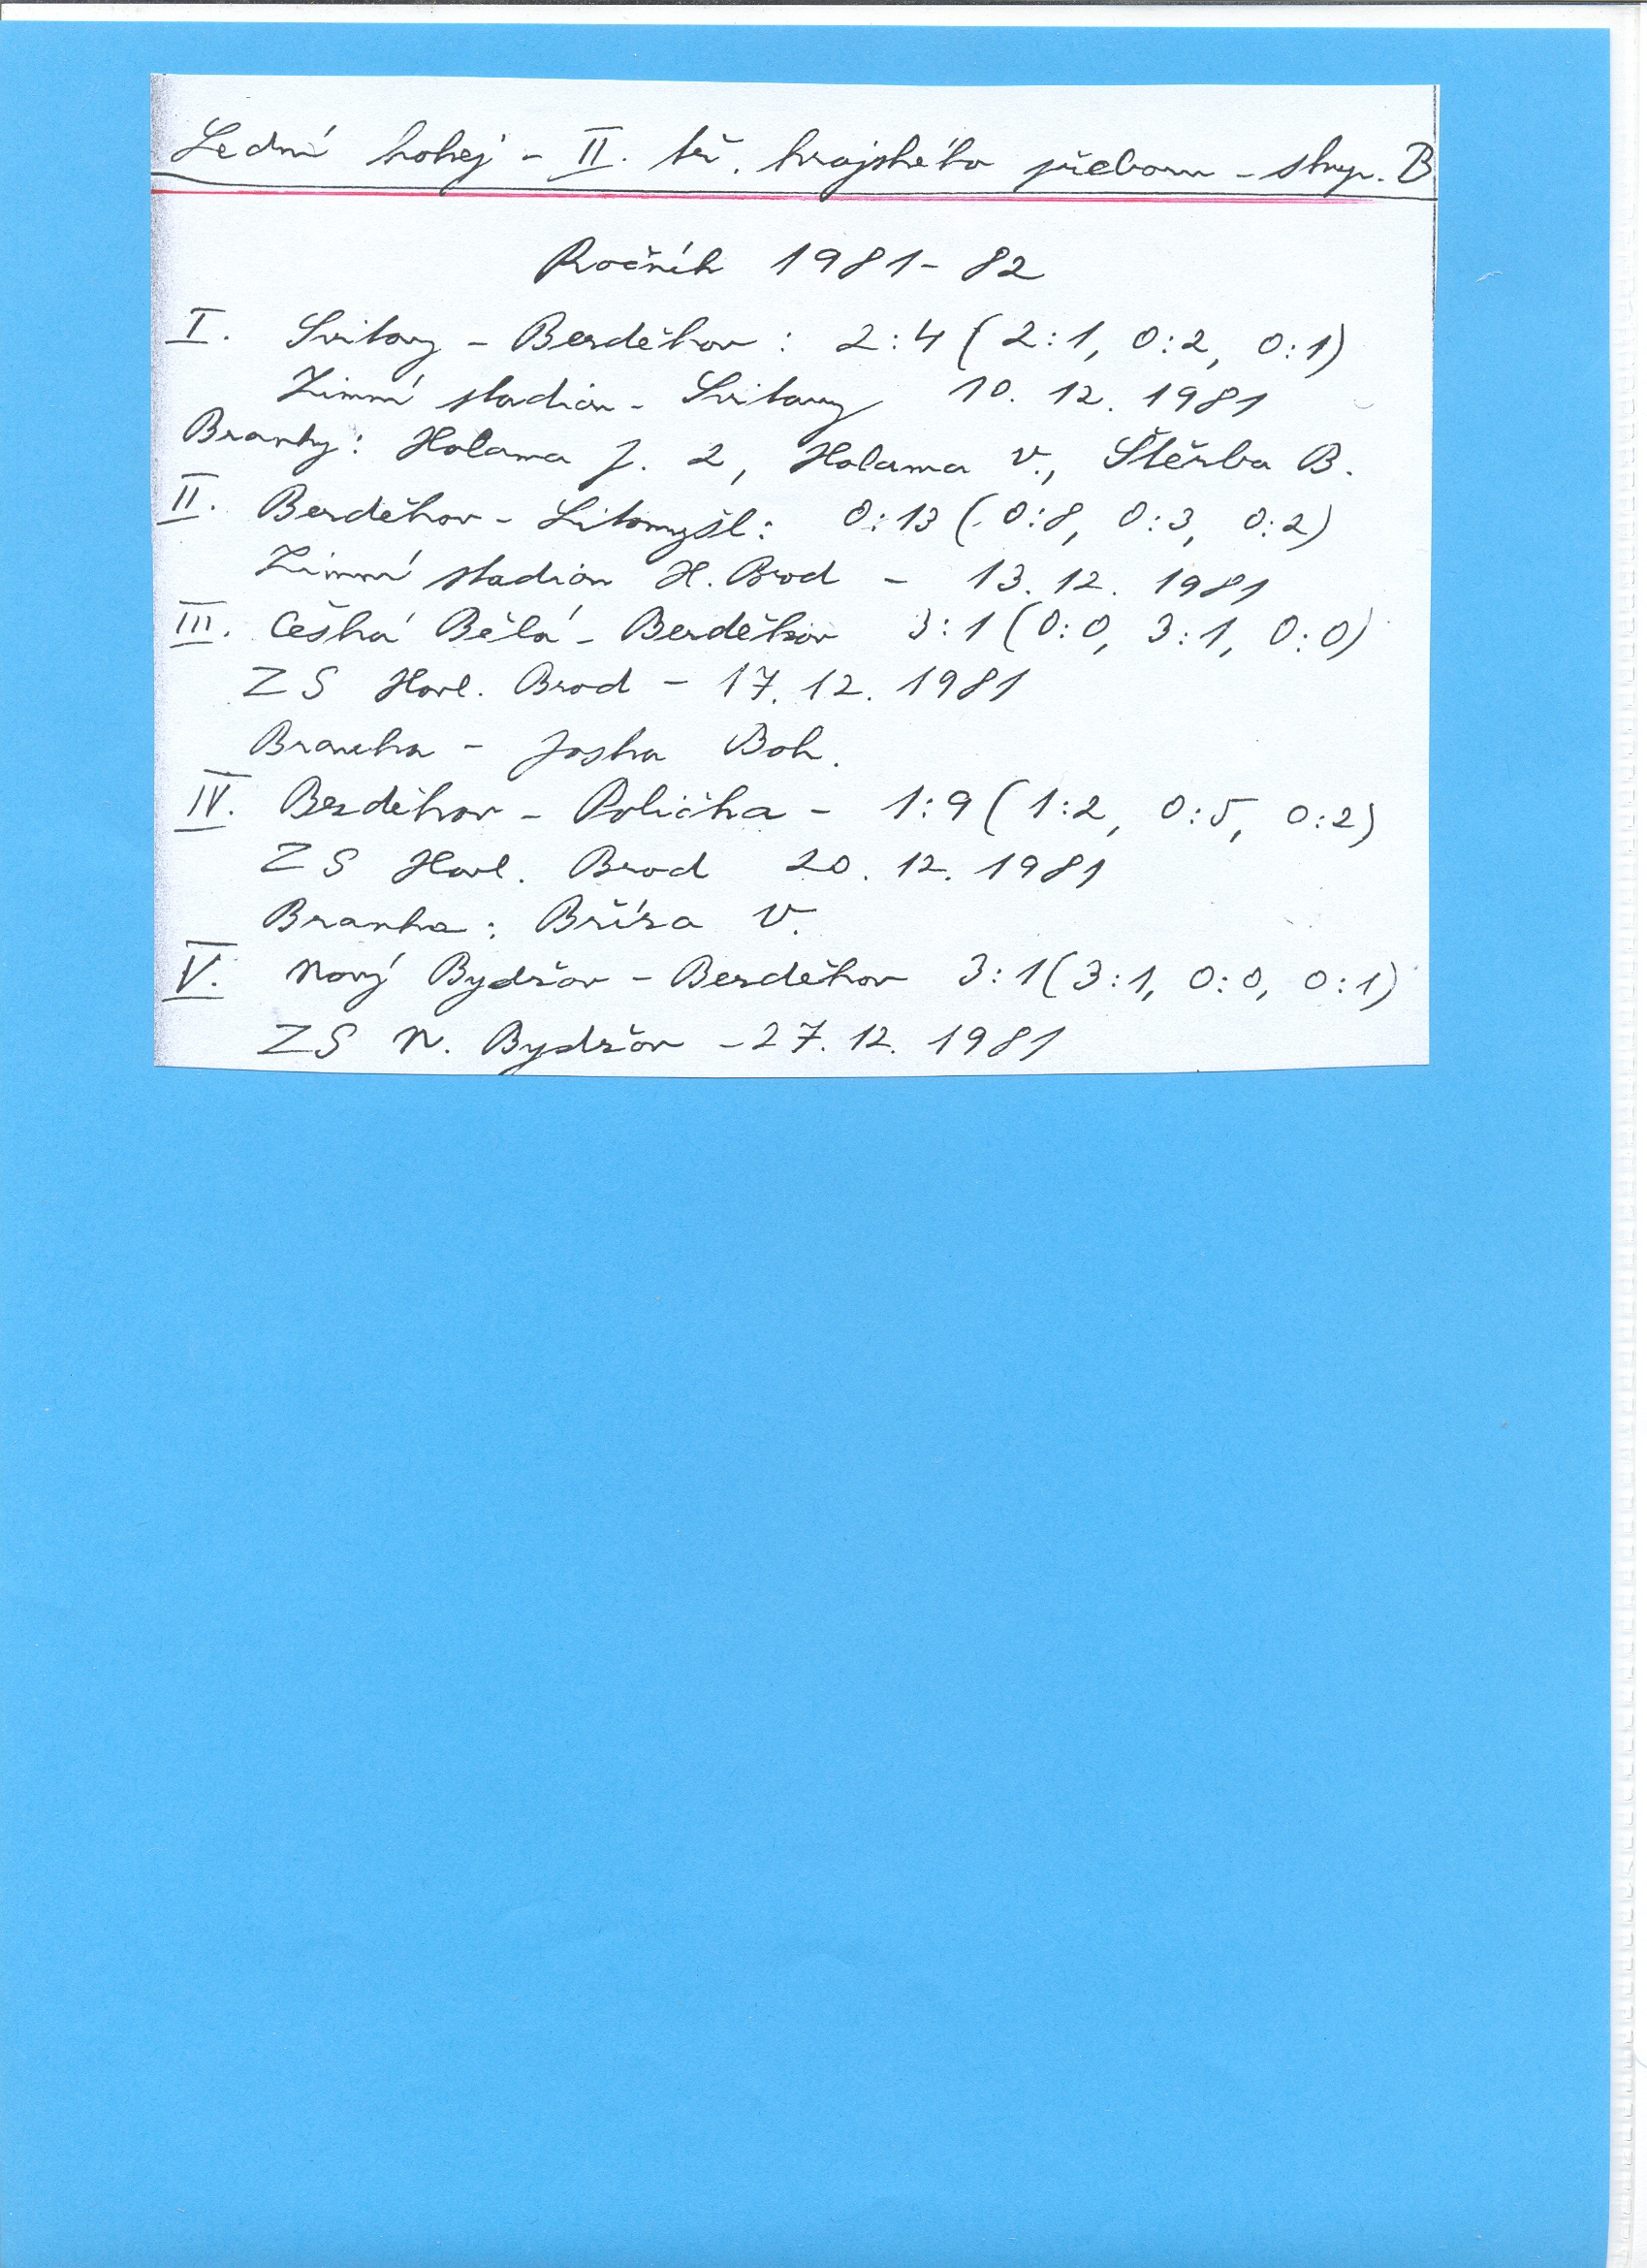 Lední hokej - II. tř. krajského přeboru - skup. B
Ročník 1981-82
I. Svitavy - Bezděkov : 2:4 ( 2:1, 0:2, 0:1)
Zimní stadion - Svitavy 10. 12. 1981
Branky: Holama J. 2, Holama V., Štěrba B.
II. Bezděkov - Litomyšl: 0:13 ( 0:8, 0:3, 0:2)
Zimní stadion H. Brod - 13. 12. 1981
III. Česká Bělá - Bezděkov 3:1 (0:0, 3:1, 0:0)
ZS Havl. Brod - 17. 12. 1981
Branka - Joska Boh.
IV. Bezděkov - Polička - 1:9 ( 1:2, 0:5, 0:2)
ZS Havl. Brod 20. 12. 1981
Branka : Bříza V.
V. Nový Bydžov - Bezděkov 3:1 (3:1, 0:0, 0:1)
ZS N. Bydžov - 27. 12. 1981